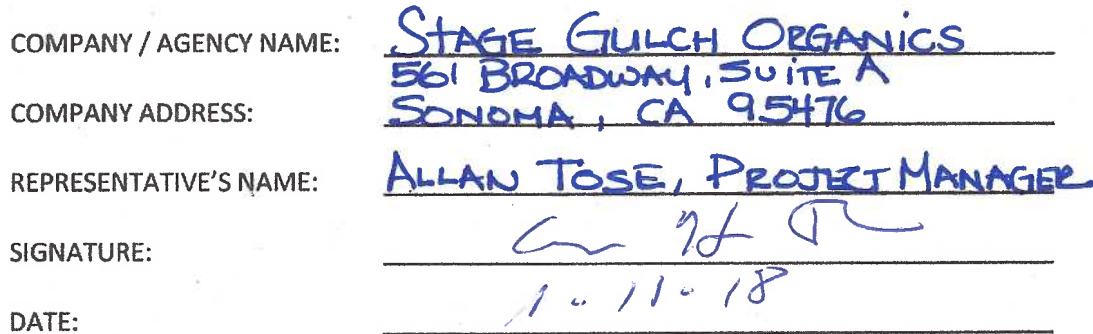 COMPANY / AGENCY NAME: STAGE GULCH ORGANICS
561 BROADWAY, SUITE A
COMPANY ADDRESS: SONOMA, CA 95476
REPRESENTATIVE'S NAME: ALLAN TOSE, PROJECT MANAGER
SIGNATURE:
DATE: 1-11-18